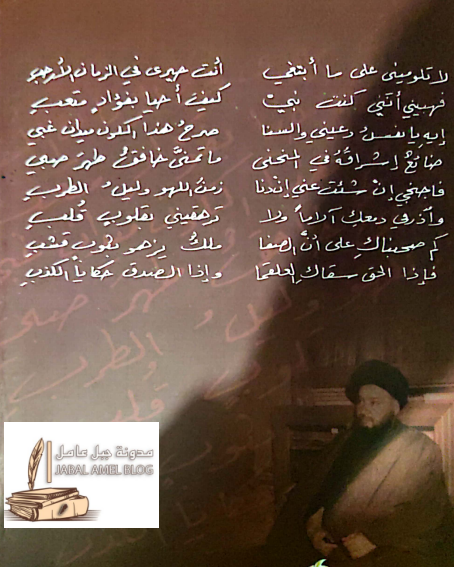 لا تلوميني على ما أبتغي أنت حيرى في الزمان الأرحب
فهبيني أنني كنت نبي كيف أحيا بفؤادٍ متعبِ
إيهِ يا نفسُ دعيني والسفا صرحُ هذا الكون ميدان غبي
ضائعٌ إشراقهُ في المنحنى ما تمنَّى خافقٌ طهرَ صبي
فاجنحي إنْ شئتِ عني إن دنا زمنُ اللهو وليلُ الطربِ
وأذرفي دمعك آلاماً ولا ترهقيني بقلوبٍ قُلَّبِ
كم صحبناكِ على أنَّ الصفا ملكٌ يزهو بثوب قشبِ
فإذا الحق سقاكِ علقما وإذا الصدق حكايا الكذبِ
مدونة جبل عامل
JABAL AMEL BLOG